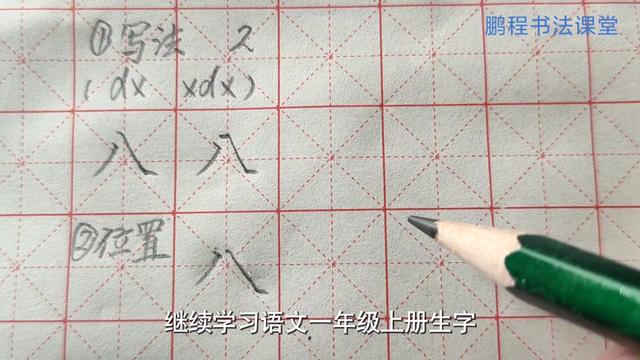 鹏程书法课堂
①写法 2
(dx xdx)
八 八
②位置
八
继续学习语文一年级上册生字